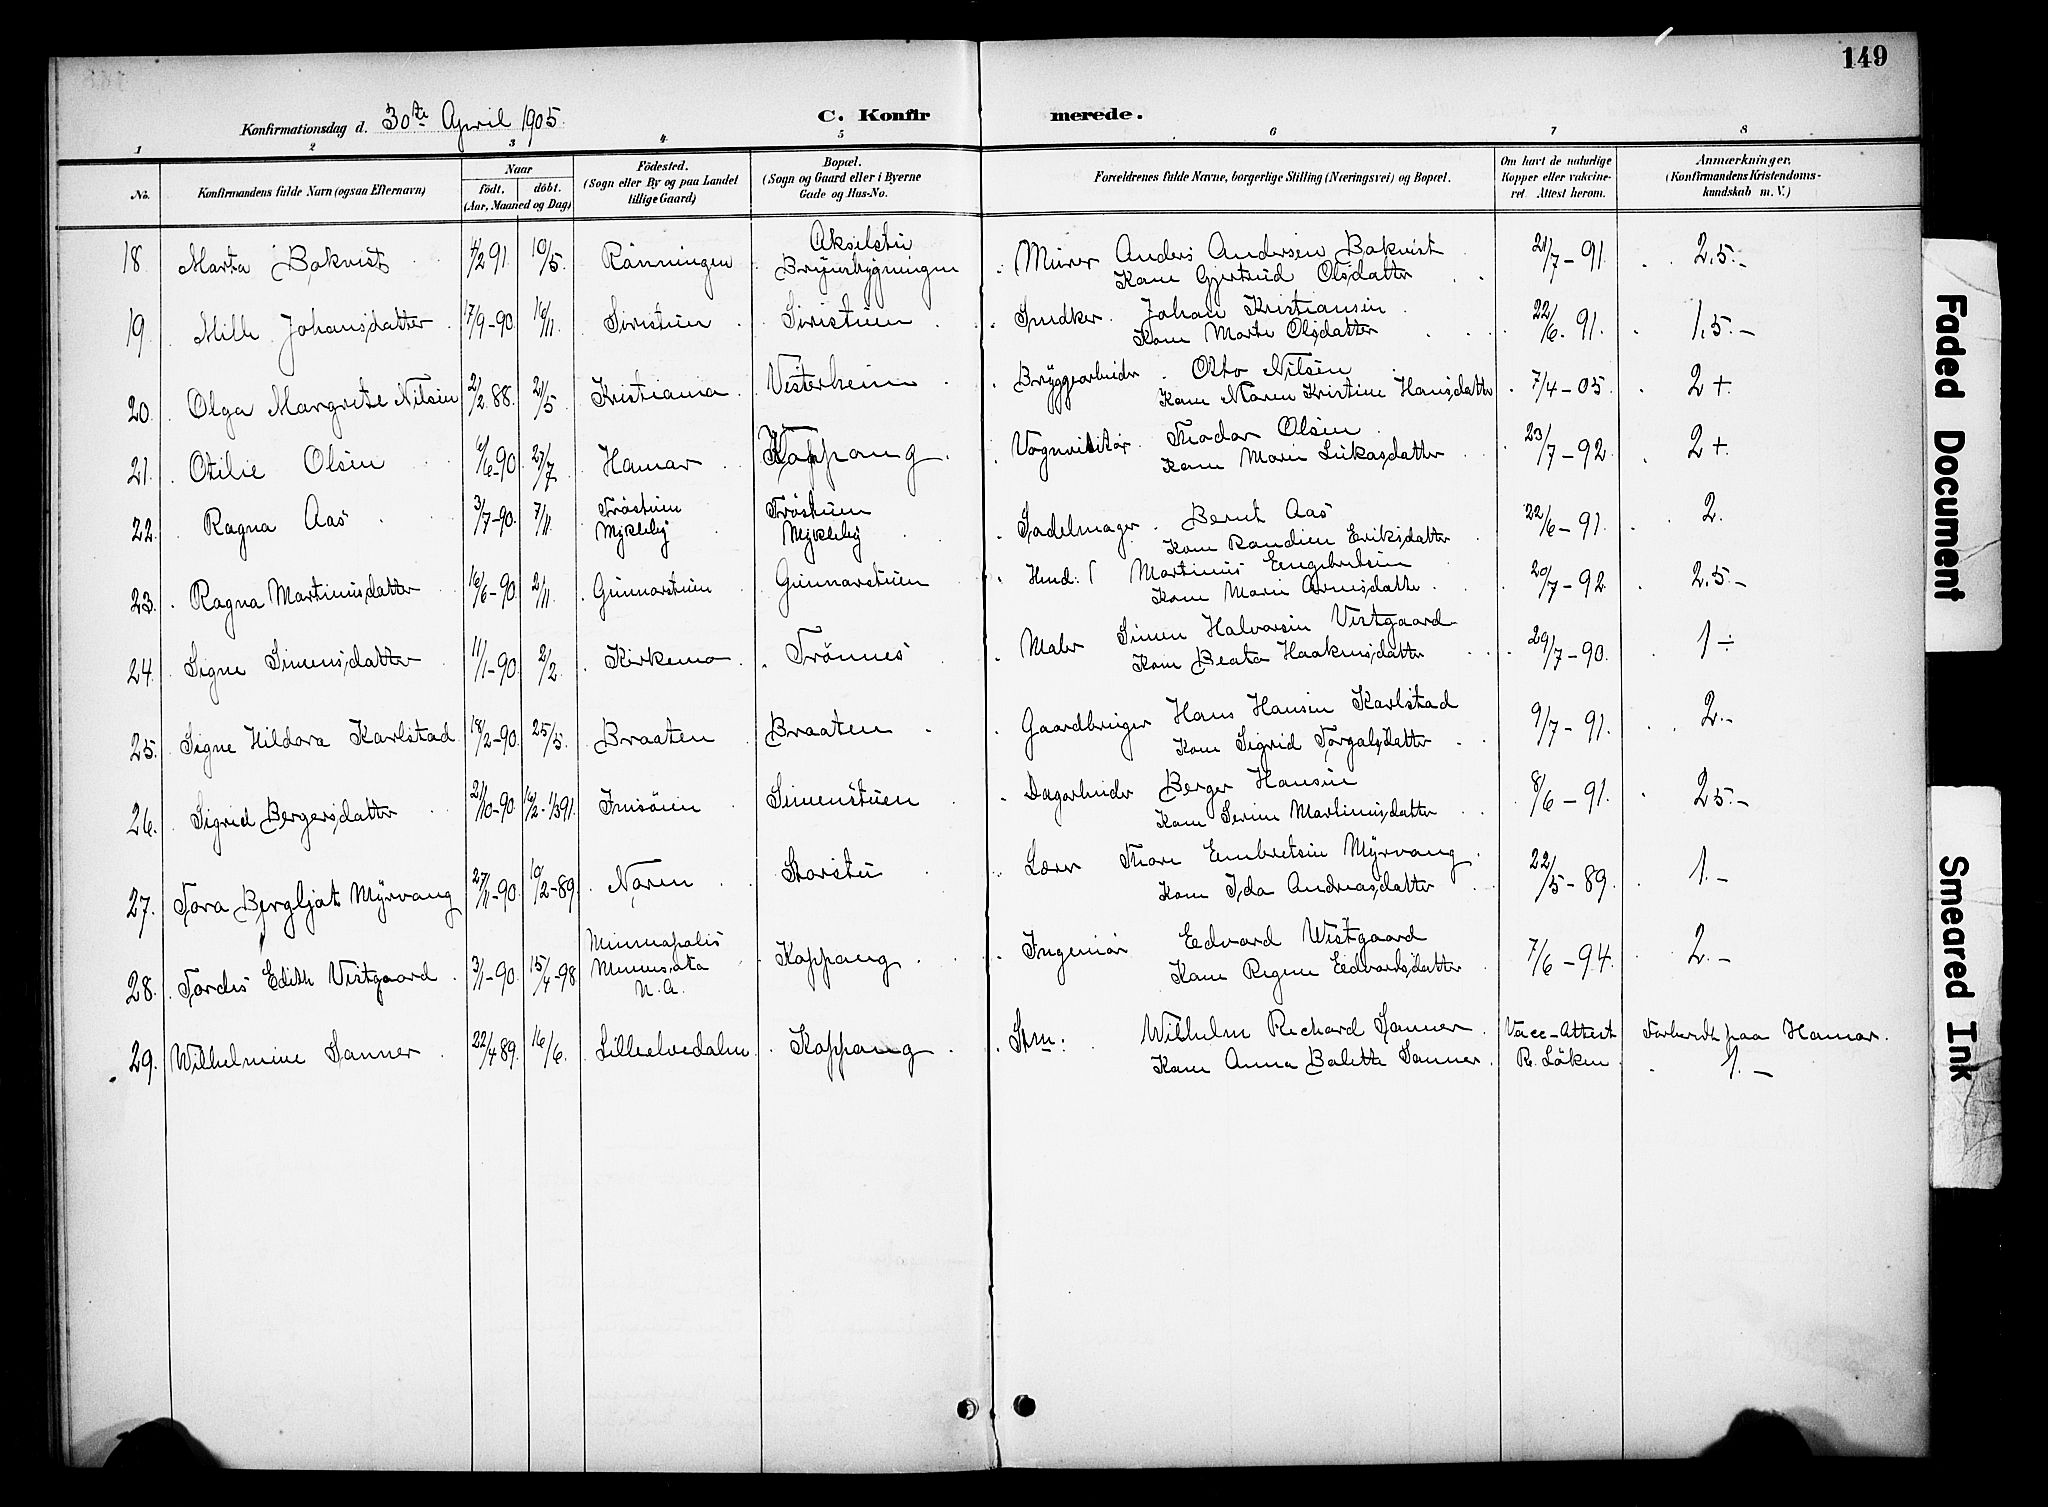 149
Konfirmationsdag d. 30te April 1905.
C. Konfirmerede.
1 2 3 4 5 6 7 8
No. Konfirmandens fulde Navn (ogsaa Efternavn)
Naar
født. døbt.
(Aar, Maaned og Dag)
Fødested.
(Sogn eller By og paa Landet
tillige Gaard)
Bopæl.
(Sogn og Gaard eller i Byerne
Gade og Hus-No.
Forældrenes fulde Navne, borgerlige Stilling (Næringsvei) og Bopæl.
Om havt de naturlige
Kopper eller vakcine-
ret. Attest herom.
Anmærkninger,
(Konfirmandens Kristendoms-
kundskab m. V.)
18 Marta Bakvist 4/2 91 10/5 Rønningen Akselstu
Brynibygningen
Murer Anders Andersen Bakvist
Kone Gjertrud Olsdatter 21/7-91 2,5.-
19 Milli Johansdatter 17/9-90 16/11 Siristuen Siristuen
Snedker Johan Kristiansen
Kone Marte Olsdatter 22/6-91. 1,5-
20. Olga Margrete Nilsen 2/2 88. 21/5 Kristiania Vesterheim
Bryggearbeider Otto Nilsen
Kone Maren Kristine Hansdatter 7/4-05 2+
21. Otilie Olsen 6/6-90 27/7 Hamar Koppang
Vognvisitør Thodor Olsen
Kone Marie Lukasdatter 23/7-92 2+
22. Ragna Aas 3/7-90 7/11 Trøstuen
Mykleby Trøstuen
Mykleby
Sadelmager Bernt Aas
Kone Randine Eriksdatter 22/6-91. 2.
23. Ragna Martinusdatter 16/6-90 2/11. Gunnarstuen Gunnarstuen
Hmd. Martinus Engebretsen
Kone Marie Arnesdatter 20/7-92 2,5-
24. Signe Simensdatter 11/1-90 2/2. Kirkemo Trønnes
Maler Simen Halvorsen Vestgaard
Kone Beata Haakensdatter 29/7-90. 1÷
25. Signe Hildora Karlstad 18/2-90. 25/5 Braaten Braaten
Gaardbruger Hans Hansen Karlstad
Kone Sigrid Torgalsdatter 9/7-91. 2.-
26. Sigrid Bergersdatter 21/10-90 Imsøien Simenstuen
Dagarbeider Berger Hansen
Kone Serine Martinusdatter 8/6-91. 25.-
27. Tora Bergljot Myrvang 27/11-90 10/2-89. Noren Storstu
Lærer Thore Embretsen Myrvang
Kone Ida Andreasdatter 22/5-89. 1.-
28. Tordis Edith Vestgaard 3/1-90 15/4-98 Minneapolis
Minnesota
N. A. Koppang
Ingeniør Edvard Westgaard
Kone Regine Edvardsdatter 7/6-94. 2.-
29. Wilhelmine Sanner 22/4 89. 16/6. Lilleelvedalen Koppang
Stm: Wilhelm Richard Sanner
Kone Anna Balette Sanner. Vacc-Attest
R. Løken Forberedt paa Hamar.
1.-
Faded Document
Smeared Ink